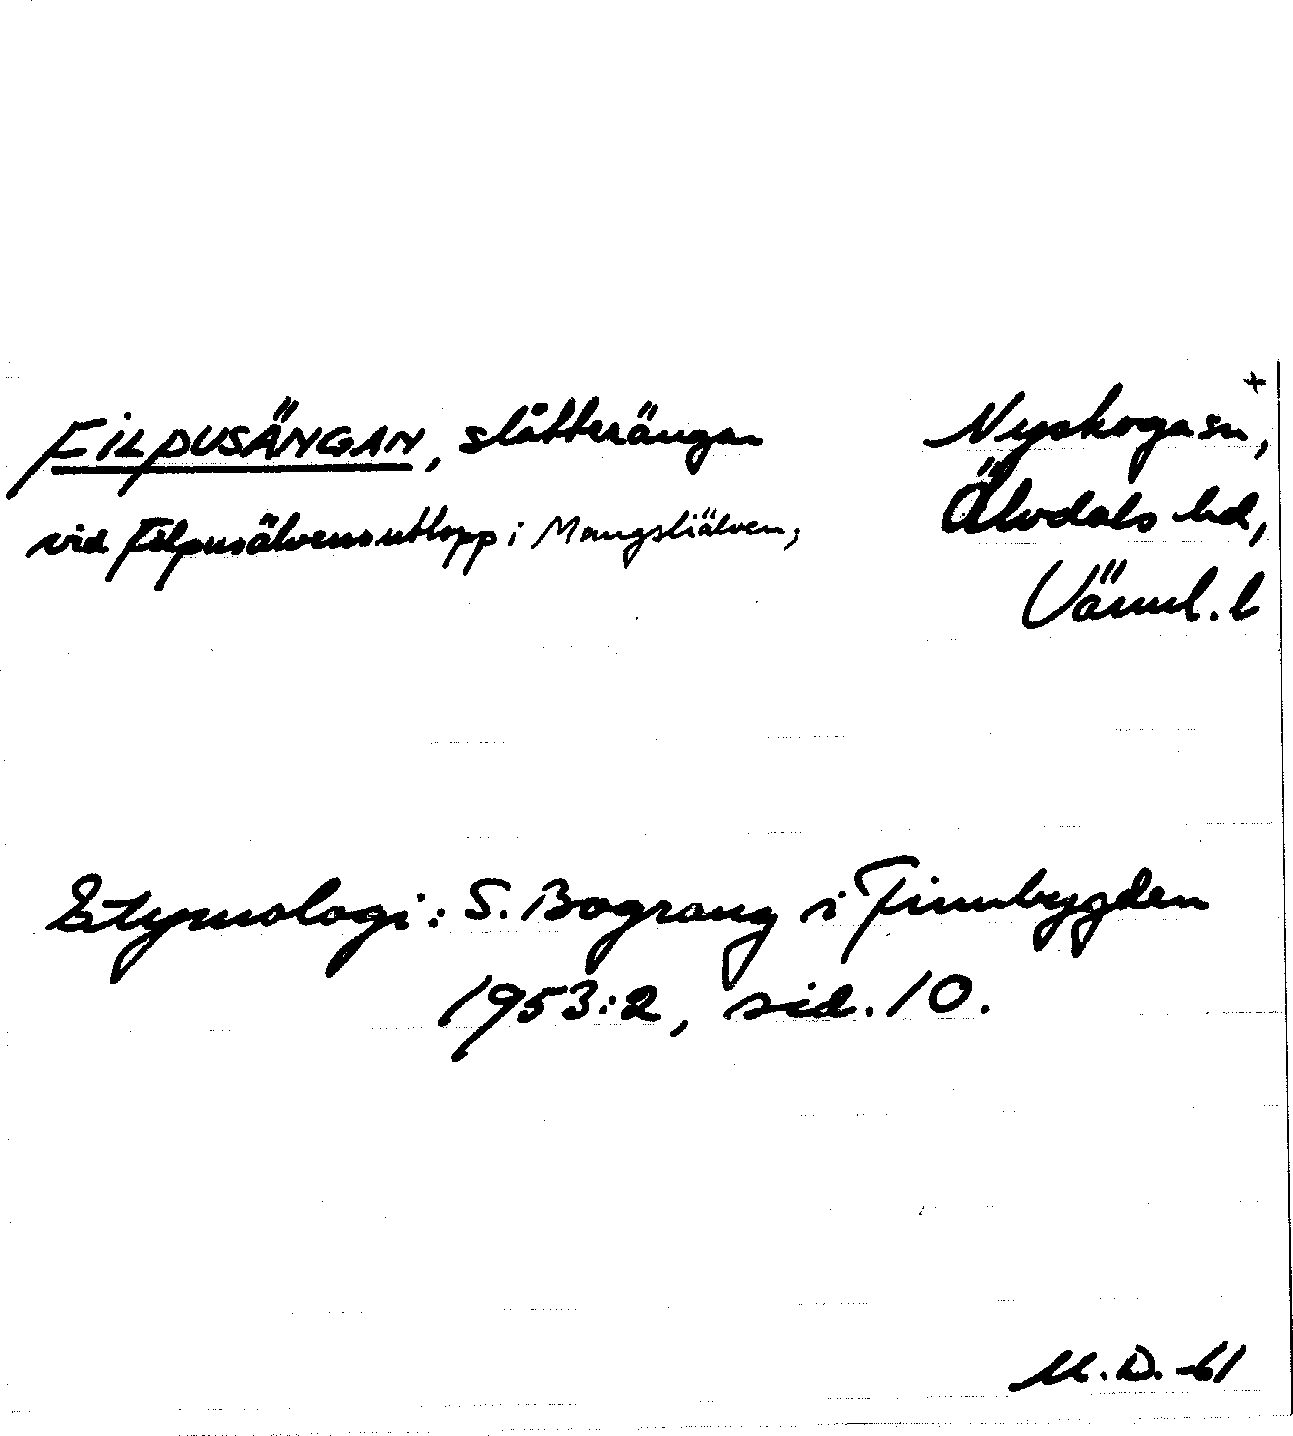 FILPUSÄNGAN, slåtterängar
vid Filpusälvens utlopp i Mangsliälven;
Nyskoga sn,
Älvdals hd,
Värml. l
Etymologi: S. Bograng i Finnbygden
1953:2, sid. 10.
M.D. -61